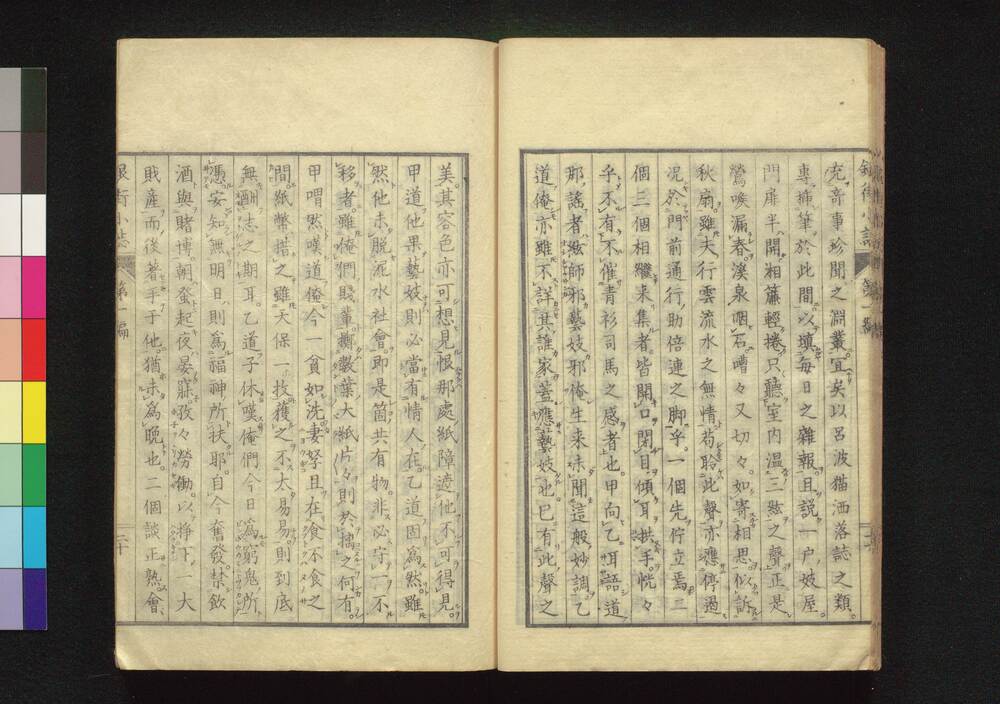 充奇事珍聞之淵叢。宜矣以呂波猫洒落誌之類。
專揷筆於此間以塡每日之雜報。且説一戸妓屋。
門扉半開。湘簾輕捲。只聽室内溫三絃之聲。正是
鶯喉漏春。溪泉咽石。嘈々又切々。如寄相思似訴
秋扇。雖夫行雲流水之無情。苟聆此聲亦應停過
況於門前通行助倍連之脚乎。一個先佇立焉。二
個三個相繼来集者。皆開口閉目。傾耳拱手。恍々
乎不有不催青衫司馬之感者也。甲向乙耳語道
那謠者絃師邪藝妓邪。俺生来未聞這般妙調。乙
道俺亦雖不詳其誰家蓋應藝妓也。已有此聲之
美。其容色亦可想見。恨那處紙障遮他不可得見。
甲道他果藝妓則必當有情人在。乙道因爲然。雖
然他未脱泥水社會。即是箇共有物。非必守一不
移者。雖俺們賤輩。擲數葉大紙片々則於擒之何有。
甲喟然嘆道。俺今一貧如洗。妻孥且在食不食之
間。紙幣措之。雖天保一枚獲之不太易易。則到底
無酬志之期耳。乙道子休嘆。俺們今日爲窮鬼所
憑。安知無明日則爲福神所扶耶。自今奮發。禁飲
酒與賭博。朝蚤起夜晏寐。孜々勞働。以挣下一大
貲產。而後著手于他。猶未爲晩也。二個談正熟。會
第一編
二十